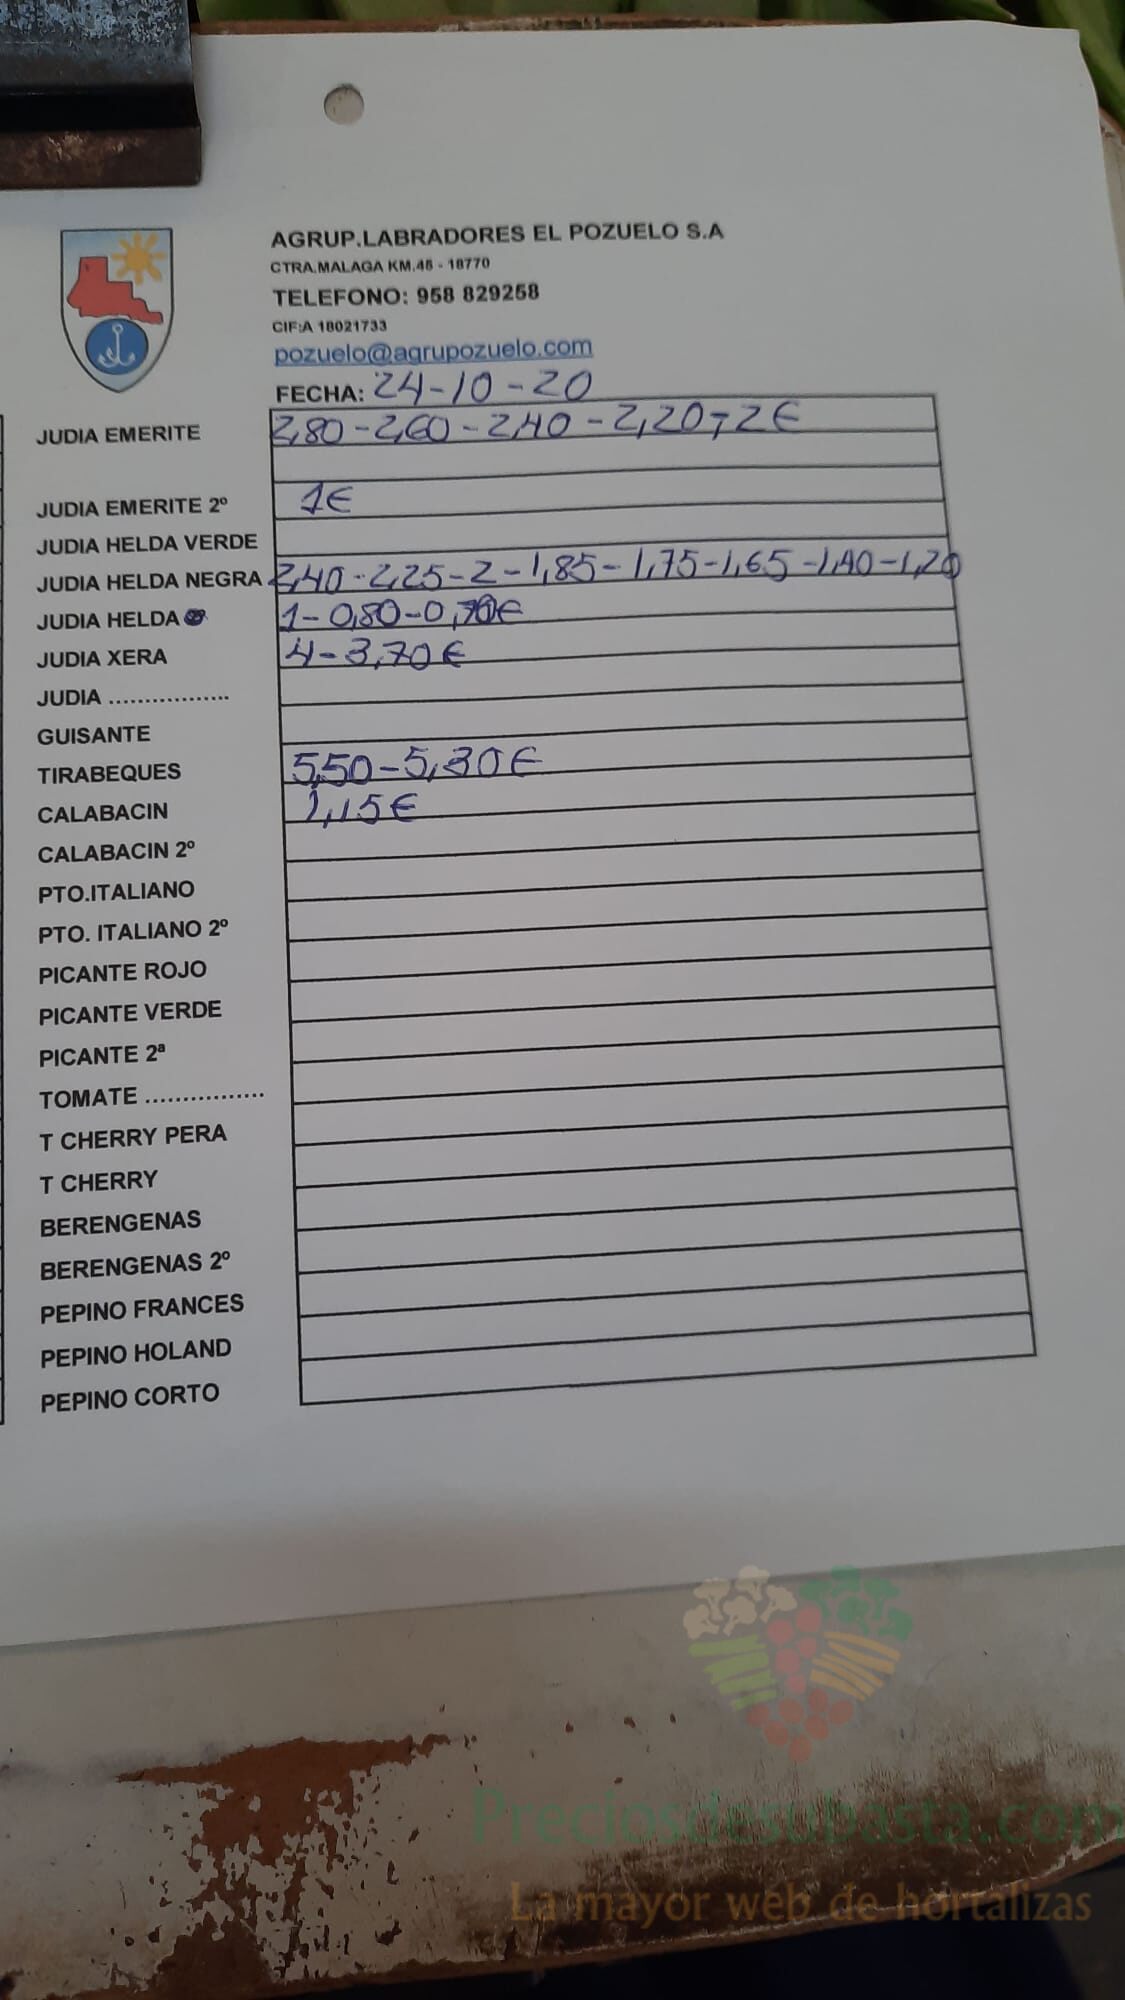 AGRUP.LABRADORES EL POZUELO S.A
CTRA.MALAGA KM.48 - 18770
TELEFONO: 958 829258
CIF:A 18021733
pozuelo@agrupozuelo.com
FECHA: 24-10-20
JUDIA EMERITE 2,80-2,60-2,40-2,20-2€
JUDIA EMERITE 2º 1€
JUDIA HELDA VERDE
JUDIA HELDA NEGRA 2,40-2,25-2-1,85-1,75-1,65-1,40-1,20
JUDIA HELDA 1-0,80-0,70€
JUDIA XERA 4-3,70€
JUDIA .................
GUISANTE
TIRABEQUES 5,50-5,30€
CALABACIN 1,15€
CALABACIN 2º
PTO.ITALIANO
PTO. ITALIANO 2º
PICANTE ROJO
PICANTE VERDE
PICANTE 2ª
TOMATE ................
T CHERRY PERA
T CHERRY
BERENGENAS
BERENGENAS 2º
PEPINO FRANCES
PEPINO HOLAND
PEPINO CORTO
Preciosdesubasta.com
La mayor web de hortalizas